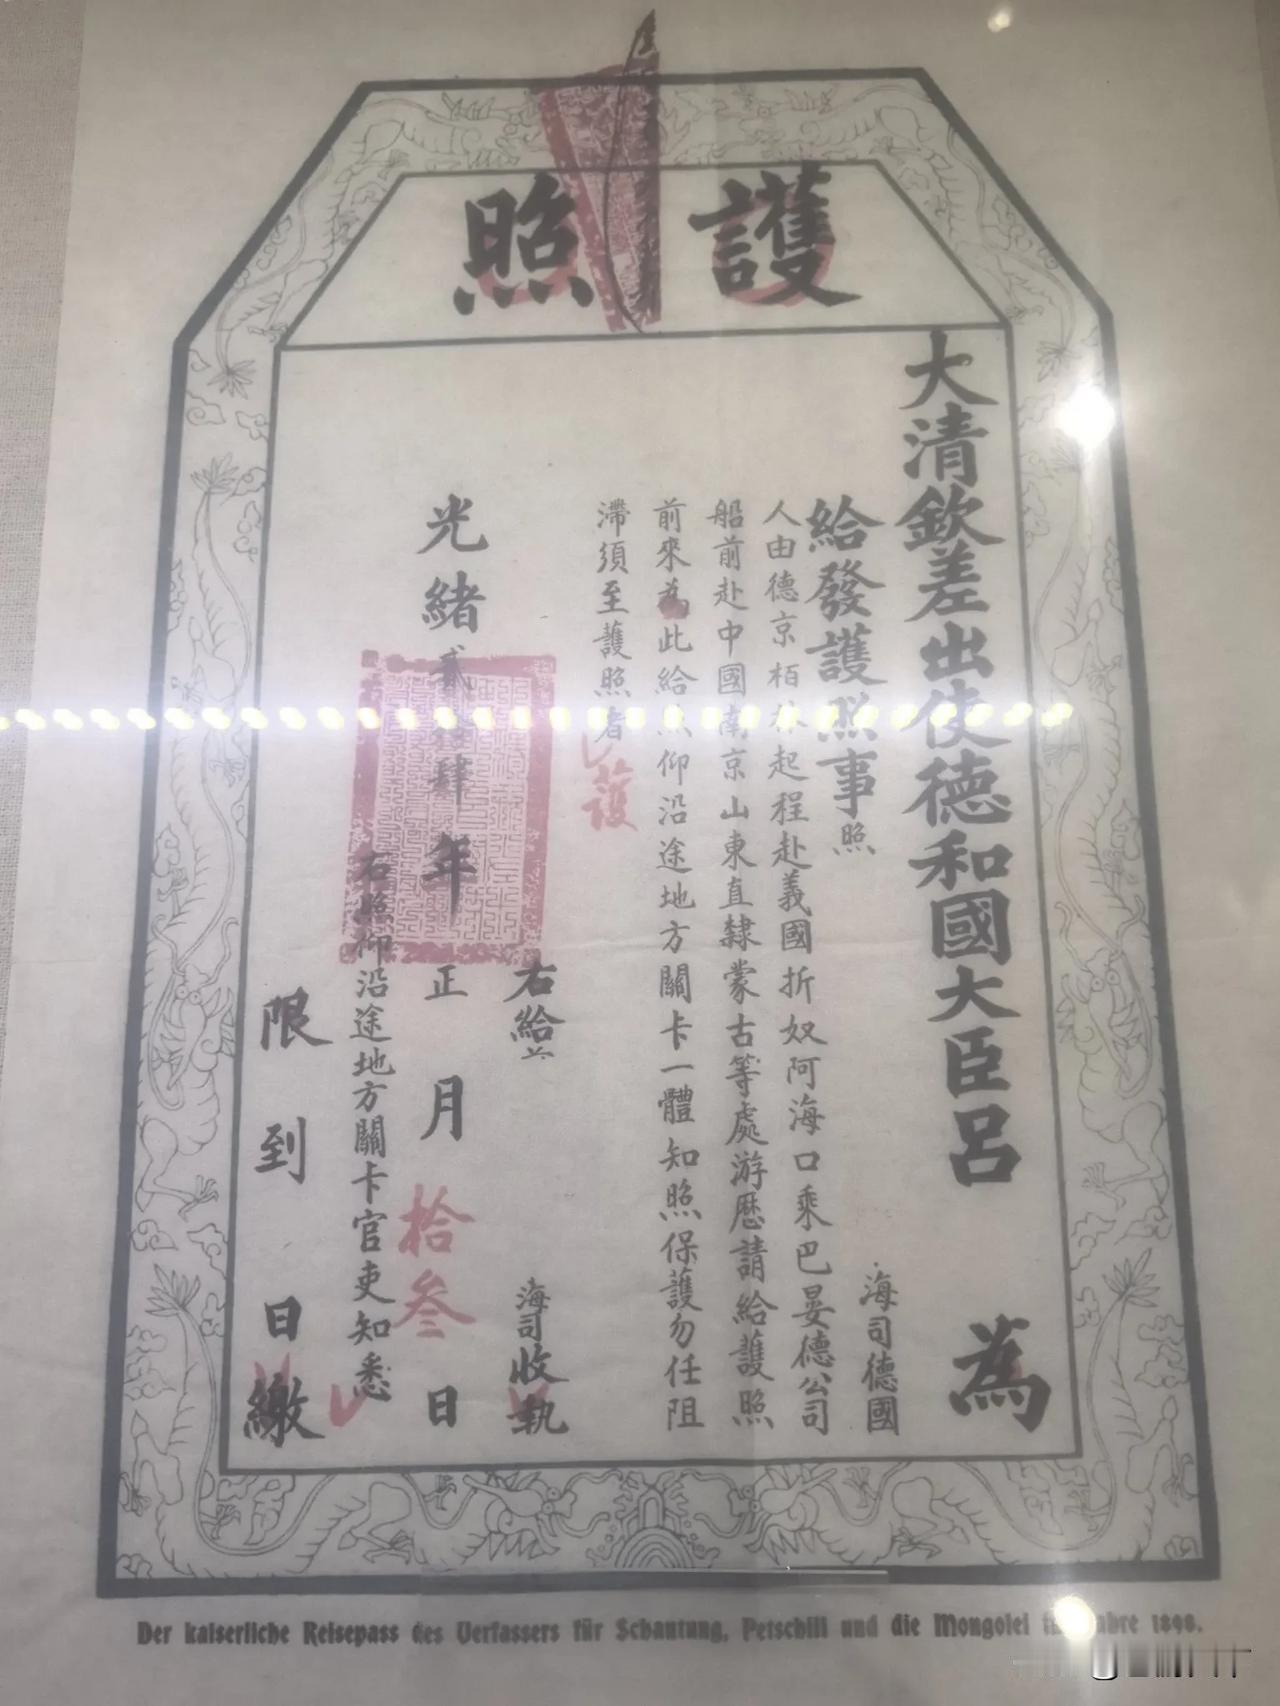 護照
大清欽差出使德和國大臣呂 為
給發護照事照 海司德國
人由德京栢林起程赴義國折奴阿海口乘巴晏德公司
船前赴中國南京山東直隸蒙古等處游歷請給護照
前來為此給照仰沿途地方關卡一體知照保護勿任阻
滯須至護照者
護
右給 海司收執
光緒貳拾肆年正月拾叁日
右照仰沿途地方關卡官吏知悉
限到 日繳
Der kaiserliche Reisepass des Verfassers für Schantung, Petschili und die Mongolei im Jahre 1898.